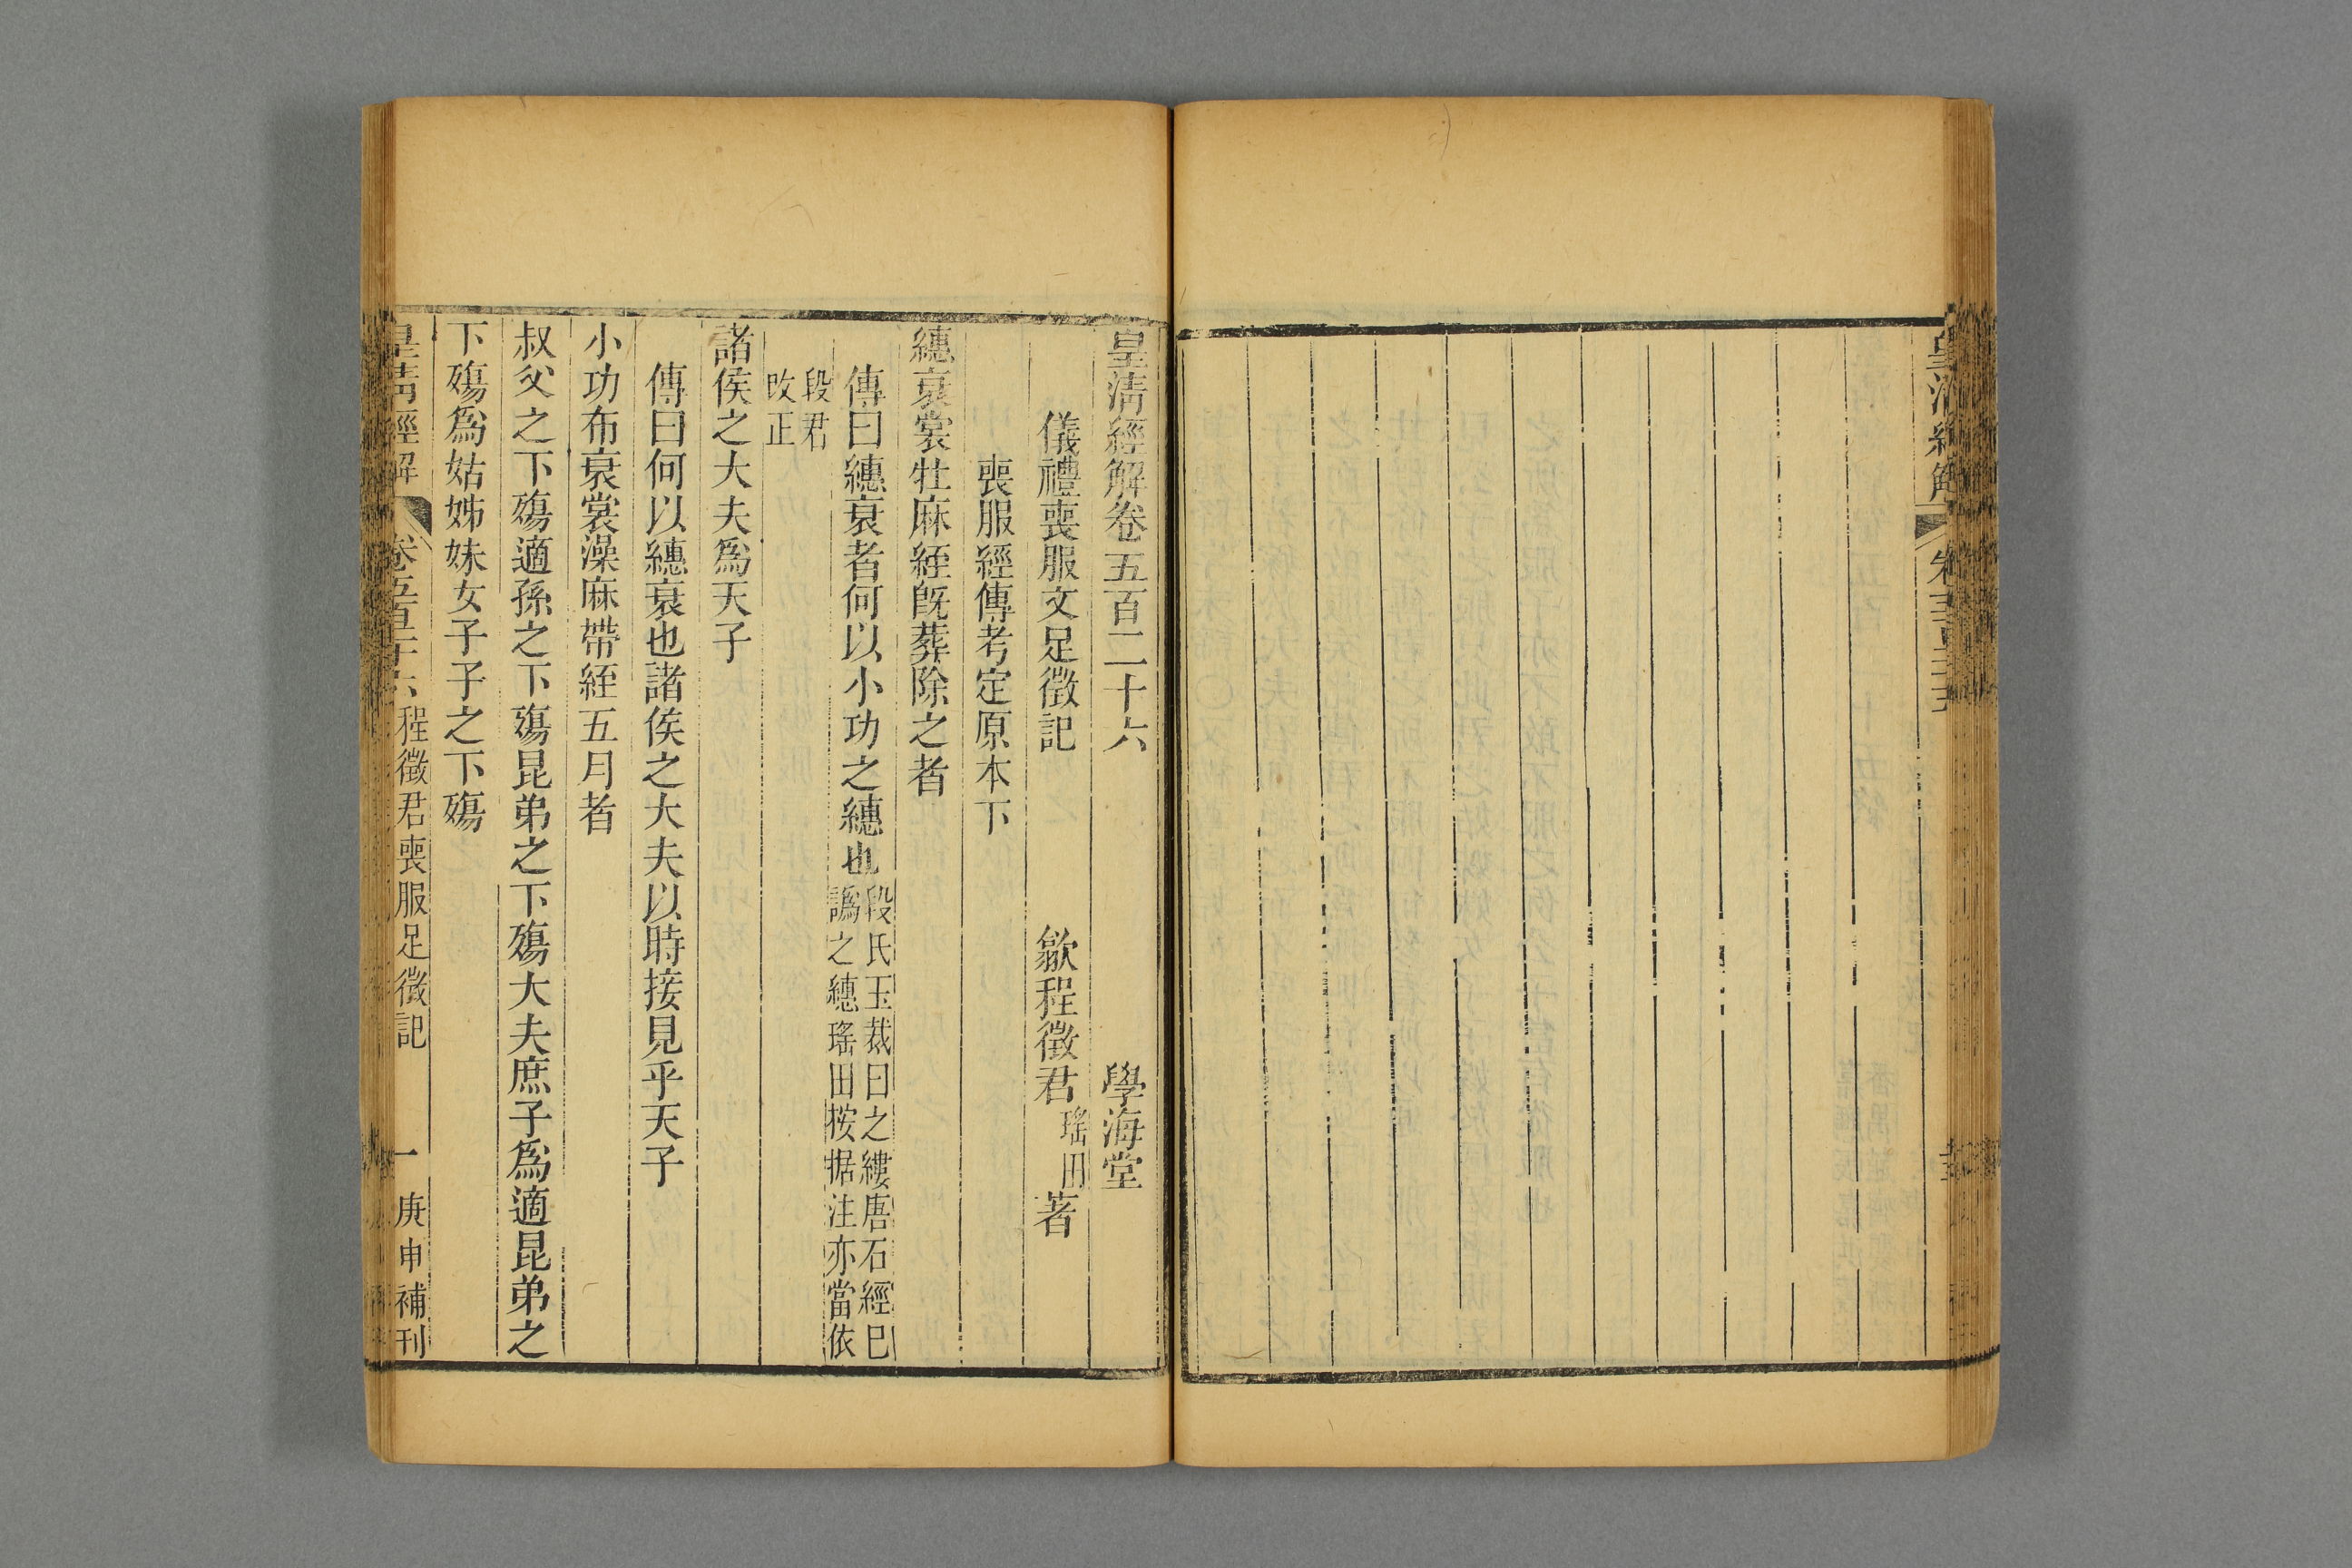 皇清經解
皇清經解卷五百二十六
學海堂
儀禮喪服文足徵記
歙程徵君瑤田著
喪服經傳考定原本下
繐衰裳牡麻絰旣葬除之者
傳曰繐衰者何以小功之繐也段氏玉裁曰之縷唐石經巳
譌之繐瑤田按据注亦當依
段君
改正
諸侯之大夫爲天子
傳曰何以繐衰也諸侯之大夫以時接見乎天子
小功布衰裳澡麻帶絰五月者
叔父之下殤適孫之下殤昆弟之下殤大夫庶子爲適昆弟之
下殤爲姑姊妹女子子之下殤
皇清經解
卷五百二十六
程徵君喪服足徵記
一
庚申補刊